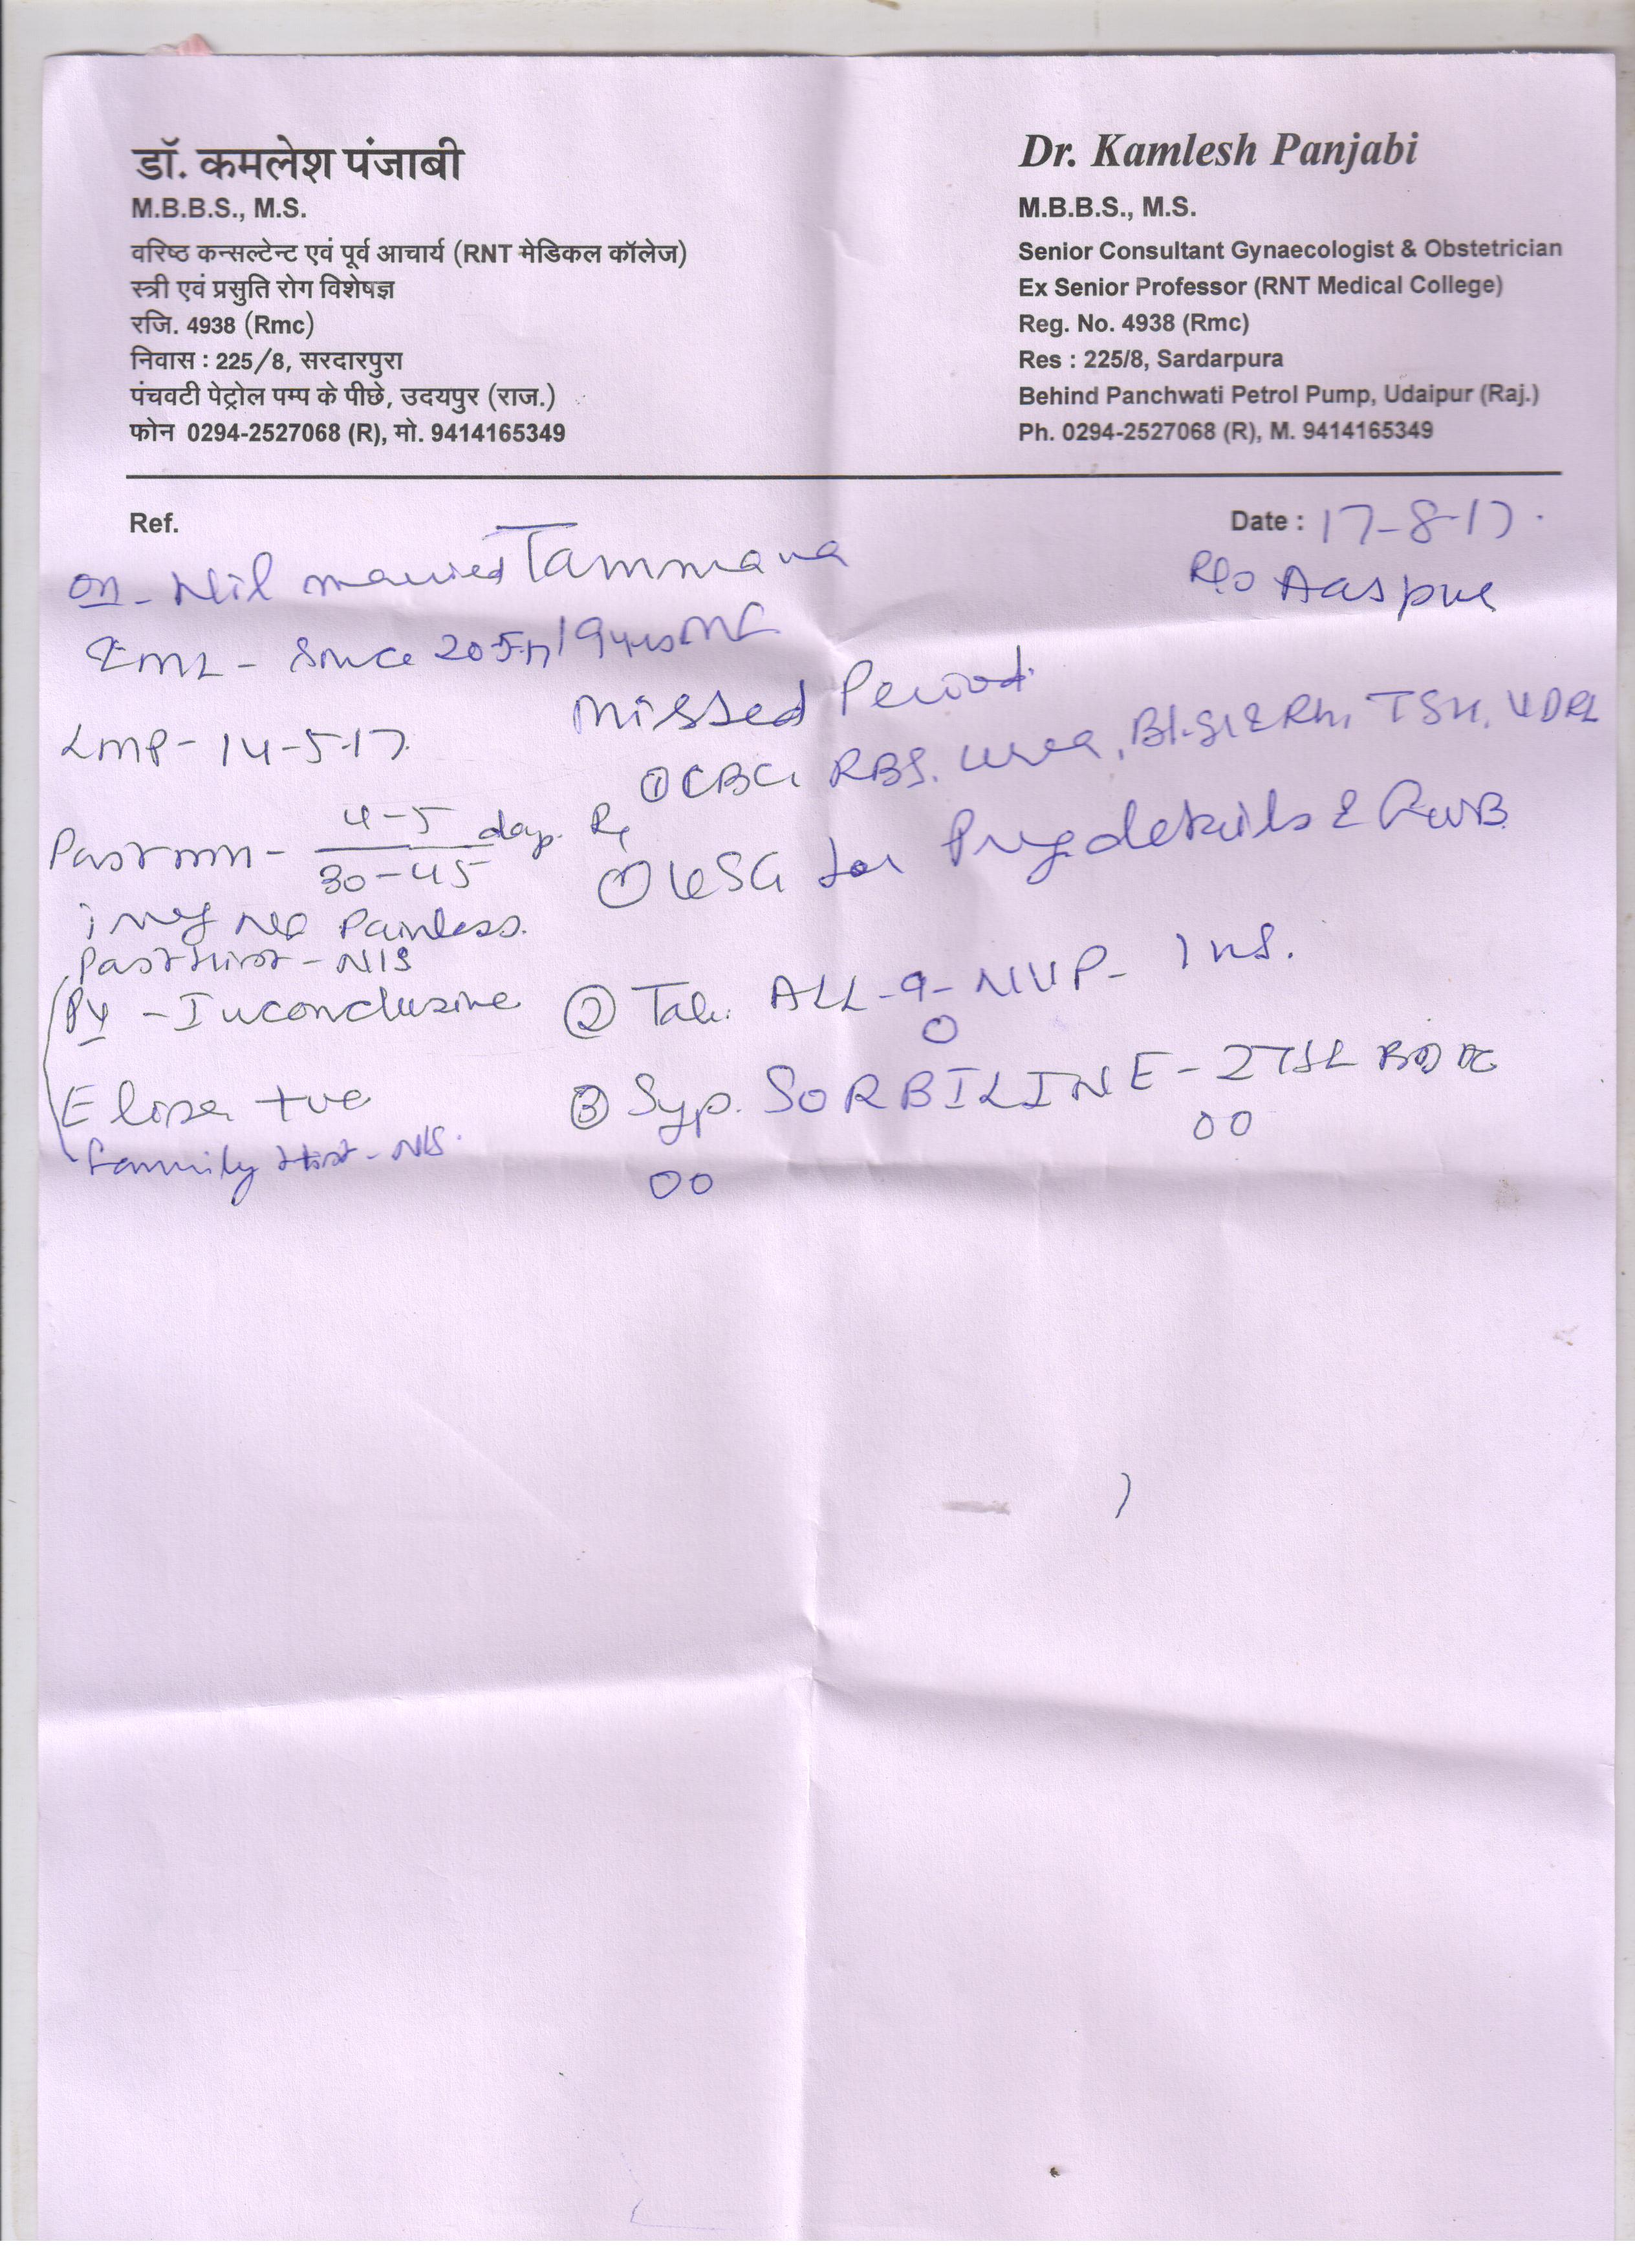 डॉ. कमलेश पंजाबी
M.B.B.S., M.S.
वरिष्ठ कन्सल्टेन्ट एवं पूर्व आचार्य (RNT मेडिकल कॉलेज)
स्त्री एवं प्रसुति रोग विशेषज्ञ
रजि. 4938 (Rmc)
निवास : 225/8, सरदारपुरा
पंचवटी पेट्रोल पम्प के पीछे, उदयपुर (राज.)
फोन 0294-2527068 (R), मो. 9414165349
Dr. Kamlesh Panjabi
M.B.B.S., M.S.
Senior Consultant Gynaecologist & Obstetrician
Ex Senior Professor (RNT Medical College)
Reg. No. 4938 (Rmc)
Res : 225/8, Sardarpura
Behind Panchwati Petrol Pump, Udaipur (Raj.)
Ph. 0294-2527068 (R), M. 9414165349
Ref.
Date : 17-8-17.
Nil married Tammana
R/o Aaspur
Since 20-5-17 19yrs
Missed Period.
LMP - 14-5-17.
① CBC, RBS, Urea, Bl.Gr & Rh, TSH, VDRL
4-5
Past mn - days.
30-45
Rx
① USG for Preg. details & FWB
Painless.
Past Hist - NIS
- Inconclusive
② Tab. ALL-9-NVP- 1 HS.
0
Elisa +ve
③ Syp. SORBILINE - 2TSF BD
00
Family Hist - NIS.
00